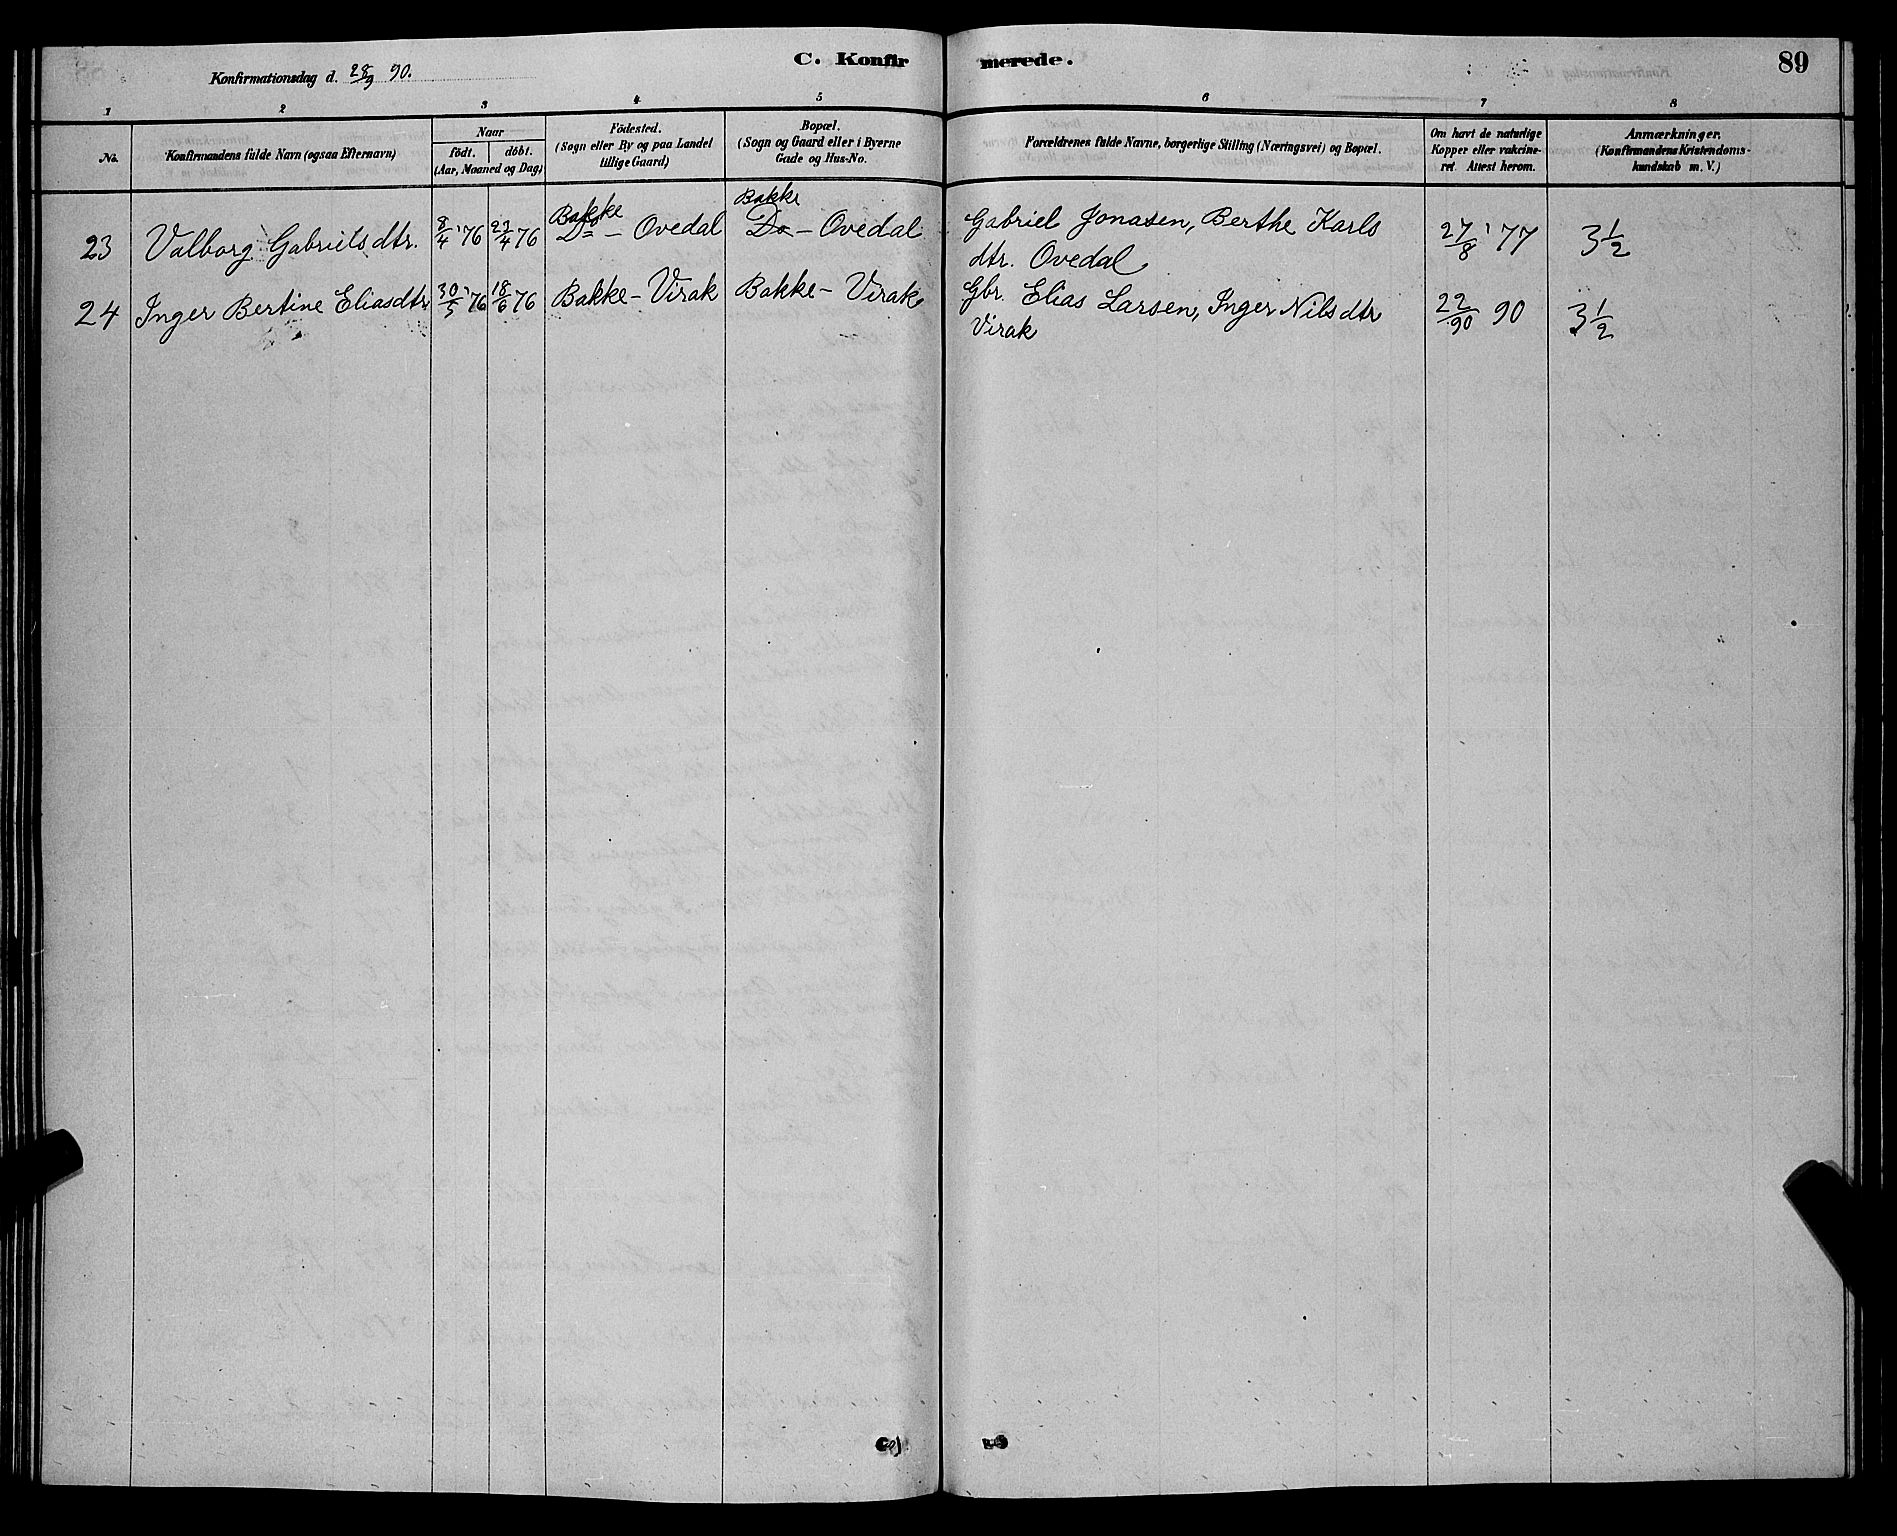 C. Konfirmerede.
89
Konfirmationsdag d. 28/9 90.
1 2 3 4 5 6 7 8
No.
Konfirmandens fulde Navn (ogsaa Efternavn)
Naar
født. døbt.
(Aar, Maaned og Dag)
Fødested.
(Sogn eller By og paa Landet
tillige Gaard)
Bopæl.
(Sogn og Gaard eller i Byerne
Gade og Hus-No.
Forældrenes fulde Navne, borgerlige Stilling (Næringsvei) og Bopæl.
Om havt de naturlige
Kopper eller vakcine-
ret. Attest herom.
Anmærkninger.
(Konfirmandens Kristendoms-
kundskab m. V.)
Bakke Bakke
23 Valborg Gabrielsdtr. 8/4 '76 23/4 76 Do – Ovedal Do – Ovedal Gabriel Jonasen, Berthe Karls 27/8 '77 3 1/2
dtr. Ovedal
24 Inger Bertine Eliasdtr 30/5 '76 18/6 76 Bakke – Virak Bakke – Virak Gbr. Elias Larsen, Inger Nilsdtr 22/90 90 3 1/2
Virak